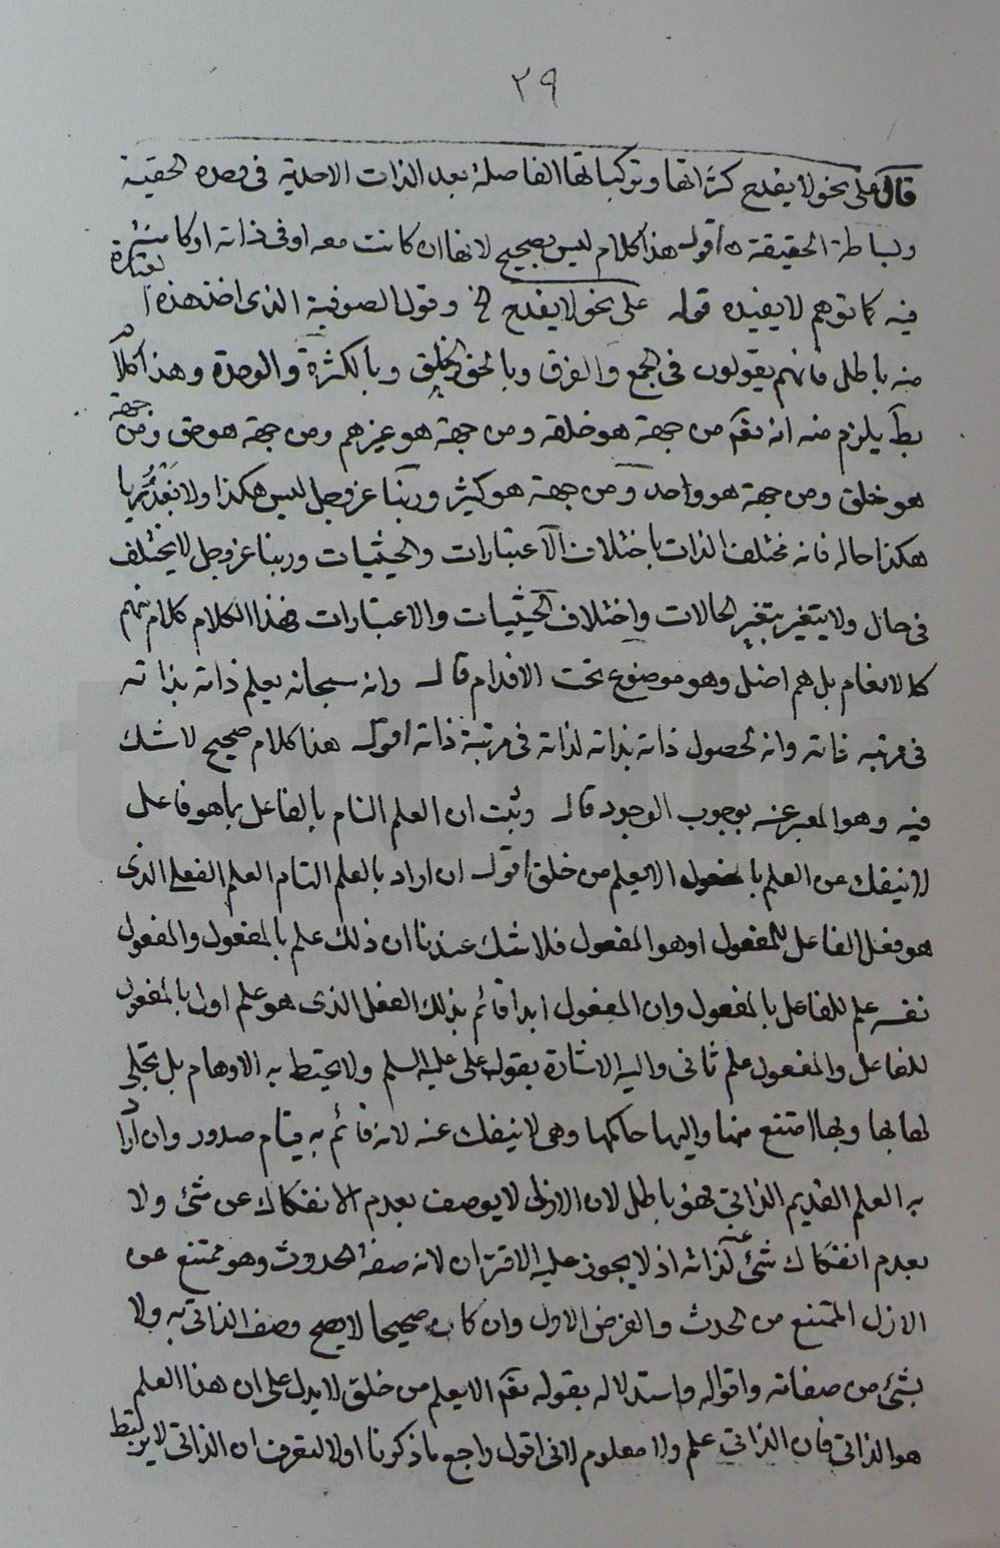 ٢٩
قال على نحو لا يقدح كثراتها وتركباتها الفاصلة بعد الذات الاحدية فى وحدته الحقيقة
وبساطة الحقيقة اقول هذا كلام ليس بصحيح لانها ان كانت معه او فى ذاته او كا منتشرة
فيه كما توهم لا يفيده قوله على نحو لا يقدح الخ وقول الصوفية الذى اخذ هذا
منه باطل فانهم يقولون فى الجمع والفرق وبالحق والخلق وبالكثرة والوحدة وهذا كلام
بط يلزم منه انه تعّم من جهة هو خلقه ومن جهة هو غيرهم ومن جهة هو حق ومن جهة
هو خلق ومن جهة هو واحد ومن جهة هو كثير وربنا عز وجل ليس هكذا ولا
هكذا حاله فانه مختلف الذات باختلاف الاعتبارات والحيثيات وربنا عز وجل لا يختلف
فى حال ولا يتغير بتغير الحالات واختلاف الحيثيات والاعتبارات فهذا الكلام كلام من هم
كالانعام بل هم اضل وهو موضوع تحت الاقدام قال وانه سبحانه يعلم ذاته بذاته
فى مرتبه ذاته وانه لحصول ذاته بذاته لذاته فى مرتبة ذاته اقول هذا كلام صحيح لا شك
فيه وهو المعبر عنه بوجوب الوجود قال وثبت ان العلم التام بالفاعل بما هو فاعل
لا ينفك عن العلم بالمفعول الا يعلم من خلق اقول ان اراد بالعلم التام العلم الفعلى الذى
هو فعل الفاعل للمفعول او هو المفعول فلا شك عندنا ان ذلك علم بالمفعول والمفعول
نفسه علم للفاعل بالمفعول وان المفعول ابدا قائم بذلك الفعل الذى هو علم اول بالمفعول
للفاعل والمفعول علم ثانى واليه الاشارة بقوله على عليه السلم ولا يحيط به الاوهام بل تجلى
لها بها وبها امتنع منها واليها حاكمها وهى لا ينفك عنه لانه قائم به قيام صدور وان اراد
به العلم القديم الذاتي فهو باطل لان الازلى لا يوصف بعدم الانفكاك عن شئ ولا
بعدم انفكاك شئ عن لذاته اذ لا يجوز عليه الاقتران لانه صفة الحدوث وهو ممتنع عن
الازل الممتنع من الحدث والفرض الاول وان كان صحيحا لا يصح وصف الذاتى به ولا
بشئ من صفاته واقواله واستدلاله بقوله تعّم الا يعلم من خلق لا يدل على ان هذا العلم
هو الذاتى فان الذاتي علم ولا معلوم لانى اقول راجع ما ذكرنا اولا لتعرف ان الذاتى لا يرتبط